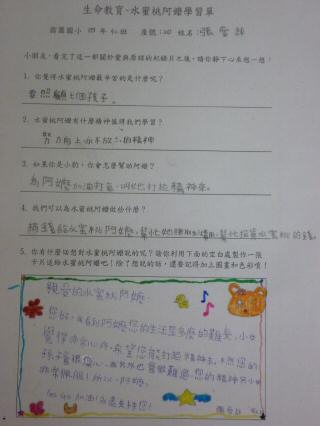 生命教育-水蜜桃阿嬤學習單
國小 四年仁班 座號:20 姓名:張
小朋友,看完了這一部關於愛與原諒的紀錄片之後,請你靜下心來想一想!
1. 你覺得水蜜桃阿嬤最辛苦的是什麼呢?
要照顧七個孩子。
2. 水蜜桃阿嬤有什麼精神值得我們學習?
努力向上永不放棄的精神
3. 如果你是小豹,你會怎麼幫助阿嬤?
為阿嬤加油打氣,叫他打起精神來。
4. 我們可以為水蜜桃阿嬤做些什麼?
捐錢給水蜜桃阿嬤,幫忙她
5. 你有什麼話想對水蜜桃阿嬤說的呢?請你利用下面的空白處製作一張
卡片送給水蜜桃阿嬤吧!除了想說的話,還要記得加上圖畫和色彩唷!
親愛的水蜜桃阿嬤:
您好,看到阿嬤您的生活是多麼的難受,小女
覺得 心疼,希望您能打起精神來,不然您的
孩子會很傷心, 也會很難過,您的精神另小女
非常佩服!所以,阿嬤,
Go Go 加油!